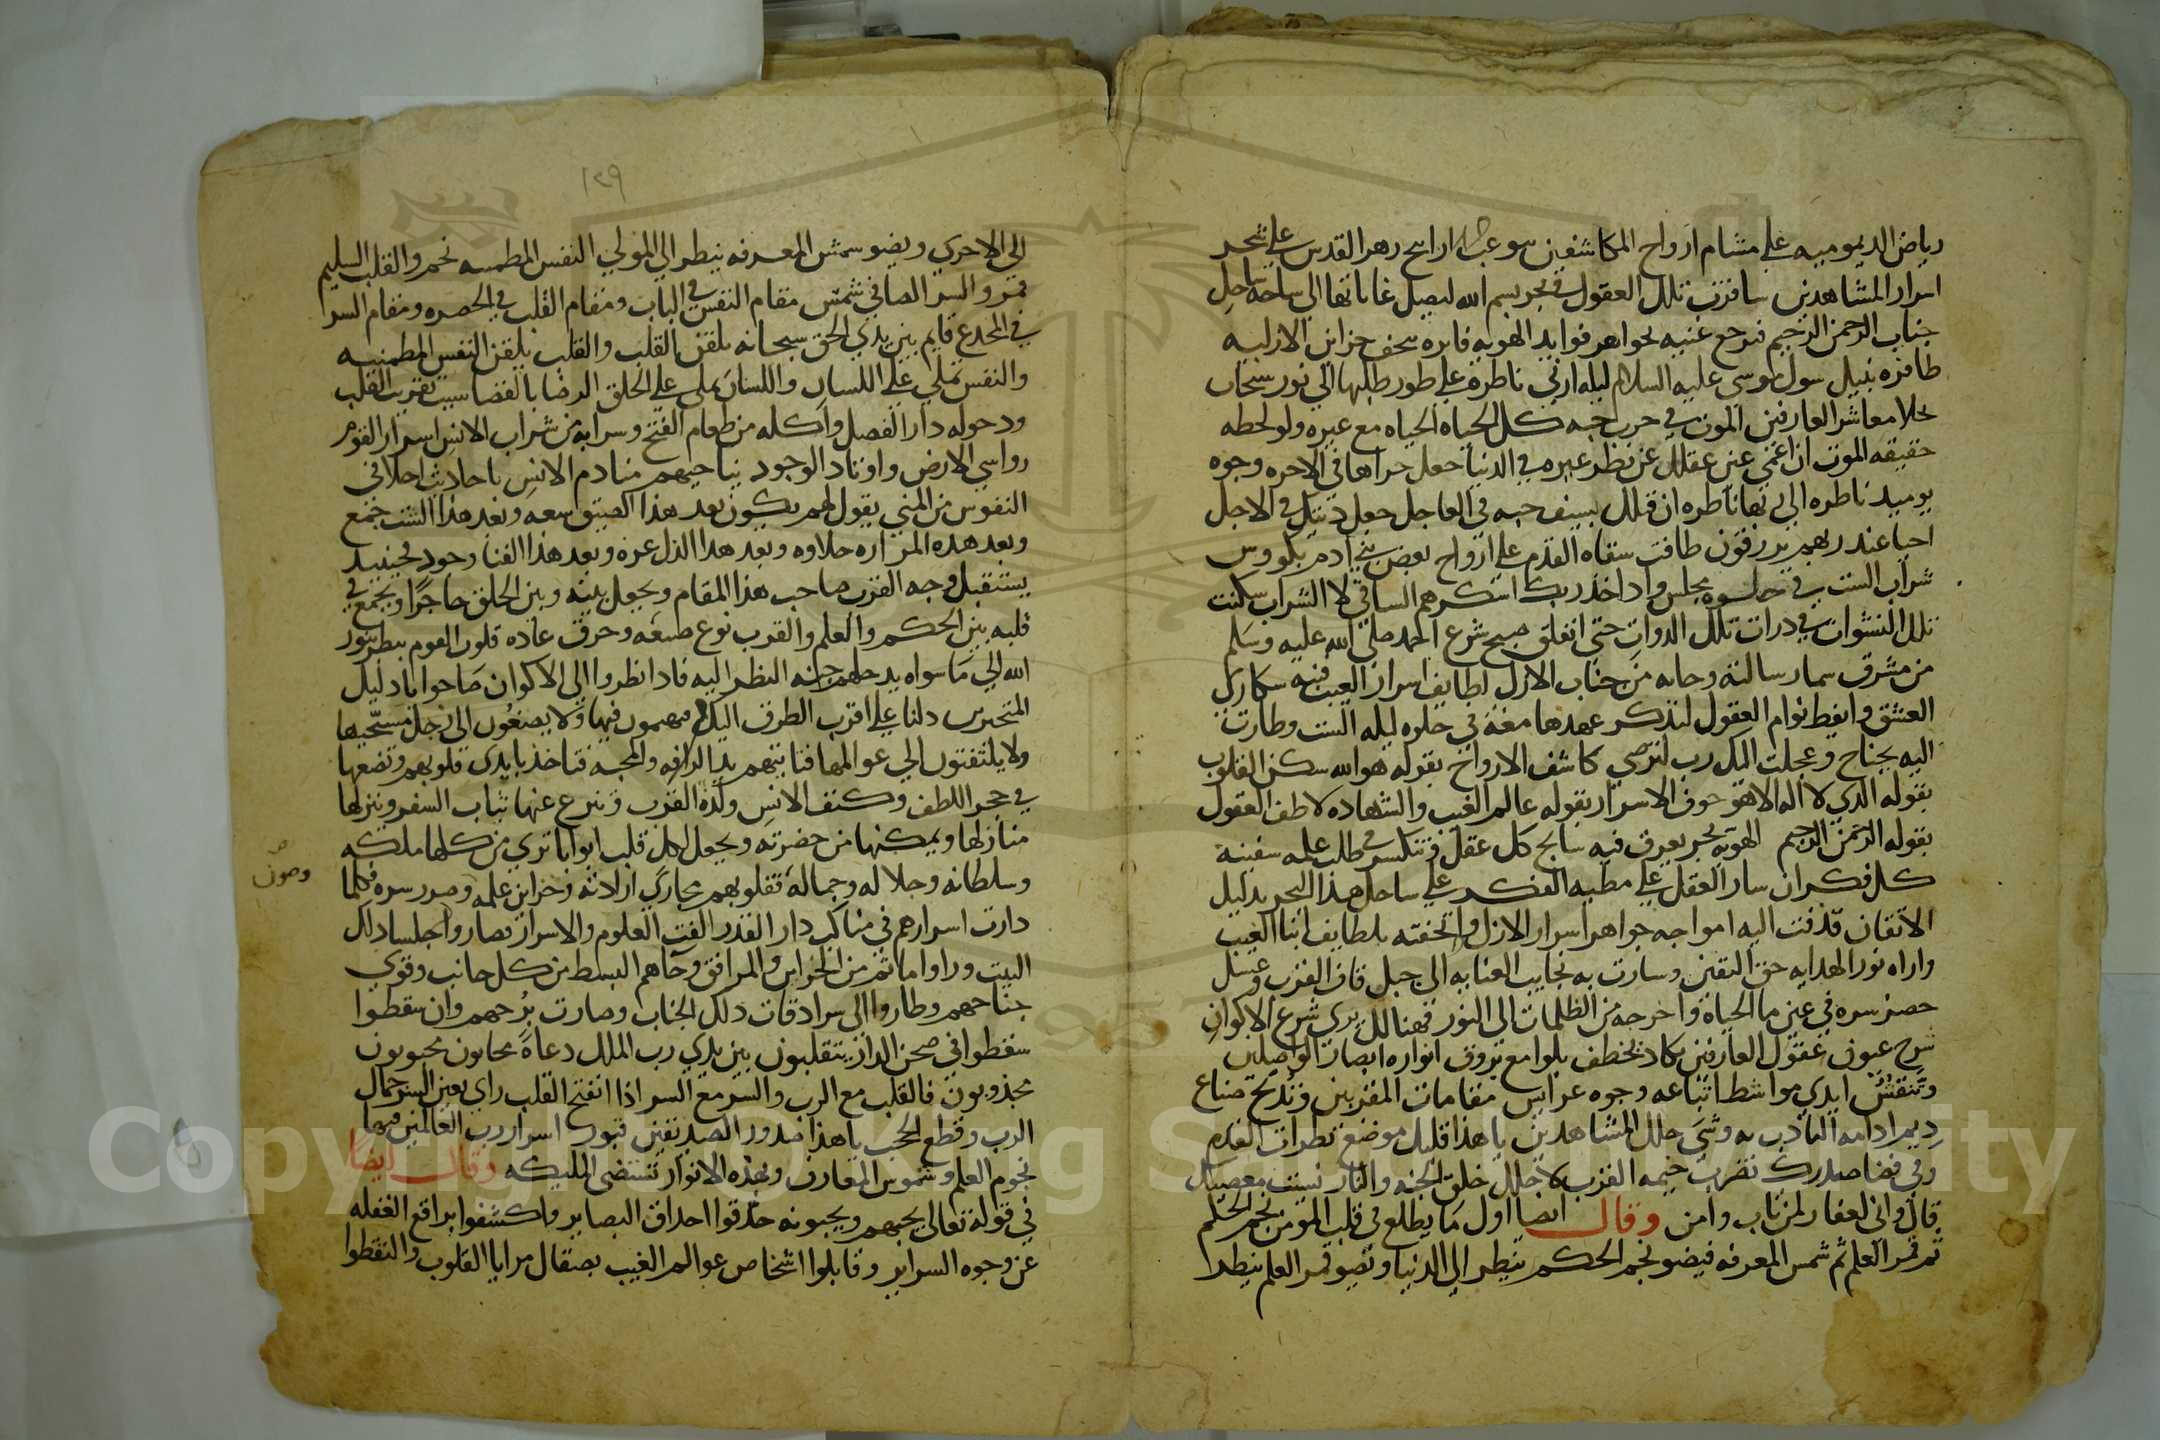 رياض الديموميه على مشام ارواح المكاشفين هو عبدا ارايح زهر القدس على شجر
اسرار المشاهدين سافرت تلك العقول في بحر بسم الله ليصل غاياتها الى ساحه ساحل
جناب الرحمن الرحيم فترجع غنيه بجواهر فوايد الهويه فايزه بتحف خزاين الازليه
ظافره بنيل سول موسى عليه السلام ليله ارني ناظره على طور طلبها الى نور سبحات
تجلا معاشر العارفين الموت في حرب حبه كل الحياه الحياه مع غيره ولو لحظه
حقيقه الموت ان اغمى عين عقلك عن نظر غيره في الدنيا جعل جزاها في الاخره وجوه
يوميذ ناضره الى ربها ناظره ان قتلك بسيف حبه في العاجل جعل ديتك في الاجل
احيا عند ربهم يرزقون طافت سقاه القدم على ارواح بعض بني ادم بكووس
شراب الست في خلوه مجلس واذ اخذ ربك اسكرهم الساقي لا الشراب سكنت
تلك النشوات في ذرات تلك الذوات حتى انفلق صبح شرع احمد صلى الله عليه وسلم
من مشرق سما رسالته وجاه من جناب الازل لطايف اسرار الغيب فنبه سكارى
العشق وايقظ نوام العقول لتذكر عهدها معه في خلوه ليله الست وطارت
اليه بجناح وعجلت اليك رب لترضى كاشف الارواح بقوله هو الله سكن القلوب
بقوله الذي لا اله الا هو خوف الاسرار بقوله عالم الغيب والشهاده لاطف العقول
بقوله الرحمن الرحيم الهويه بحر يغرق فيه سابح كل عقل وتنكسر في طلب علمه سفينه
كل فكر ان سار العقل على مطيه الفكر على ساحل هذا البحر بدليل
الاتقان قذفت اليه امواجه جواهر اسرار الازل واتحفته بلطايف انبا الغيب
واراه نور الهدايه حق اليقين وسارت به نجايب العنايه الى جبل قاف القرب وغسل
خضر سره في عين ما الحياه واخرجه من الظلمات الى النور فهنالك يرى شرع الاكوان
شرح عيون عقول العارفين يكاد يخطف بلوامع بروق انواره ابصار الواصلين
وتنقش ايدي مواشط اتباعه وجوه عرايس مقامات المقربين وتدبج صناع
ديم ادامه التادب به وشى حلل المشاهدين يا هذا قلبك موضع نظرات القدم
وفي فضا صدرك تضرب خيمه القرب لاجلك خلق الجنه والنار نسيت معصيتك
قال واني لغفار لمن تاب وامن وقال ايضا اول ما يطلع في قلب المومن نجم الحكم
ثم قمر العلم ثم شمس المعرفه فبضو نجم الحكم ينظر الى الدنيا وبضو قمر العلم ينظر
١٢٩
الى الاخرى وبضو شمس المعرفه ينظر الى المولى النفس المطمينه نجم والقلب السليم
قمر والسر الصافي شمس مقام النفس في الباب ومقام القلب في الحضره ومقام السر
في المخدع قايم بين يدي الحق سبحانه يلقن القلب والقلب يلقن النفس المطمينه
والنفس تملي على اللسان واللسان يملي على الخلق الرضا بالقضا سبب تقريب القلب
ودخوله دار الفصل واكله من طعام الفتح وشرابه من شراب الانس اسرار القوم
رواسي الارض واوتاد الوجود يناجيهم منادم الانس باحاديث احلا في
النفوس من المنى يقول لهم يكون بعد هذا الضيق سعه وبعد هذا الشتت جمع
وبعد هذه المراره حلاوه وبعد هذا الذل عزه وبعد هذا الفنا وجود فحينيذ
يستقبل وجه القرب صاحب هذا المقام ويجعل بينه وبين الخلق حاجزا ويجمع في
قلبه بين الحكم والعلم والقرب نوع صنعه وخرق عاده قلوب القوم ينظر بنور
الله الى ما سواه يدخلهم جنه النظر اليه فاذا نظروا الى الاكوان صاحوا يا دليل
المتحيرين دلنا على اقرب الطرق اليك فيهيمون فيها ولا يصغون الى زجل مسبحيها
ولا يلتفتون الى عوالمها فتاتيهم يد الرافه والمحبه فتاخذ بايدي قلوبهم وتضعها
في حجر اللطف وكنف الانس ولذه القرب وتنزع عنها ثياب السفر وتنزلها
منازلها ويمكنها من حضرته ويجعل لكل قلب ابوابا ترى من كلها ملكه
وسلطانه وجلاله وجماله فقلوبهم مجاري ارادته وخزاين علمه وصدر سره فكلما
وصون
دارت اسرارهم في مناكب دار القدر الفت العلوم والاسرار فصاروا جلسا ذلك
البيت وراوا ما ثم من الخزاين والمرافق وجاهم البسط من كل جانب وقوي
جناحهم وطاروا الى سرادقات ذلك الجناب وصارت برجهم وان سقطوا
سقطوا في صحن الدار يتقلبون بين يدي رب الملك دعاه مجابون محبوبون
مجذوبون فالقلب مع الرب والسر مع السر اذا انفتح القلب راى بعين السر جمال
الرب وقطع الحجب يا هذا صدور الصديقين قبور اسرار رب العالمين فيها
نجوم العلم وشموس المعارف وبهذه الانوار تستضى المليكه وقال ايضا
في قوله تعالى يحبهم ويحبونه حدقوا احداق البصاير واكشفوا براقع الغفله
عن وجوه السراير وقابلوا اشخاص عوالم الغيب بصقال مرايا القلوب والتقطوا
Copyright © King Saud University
1957